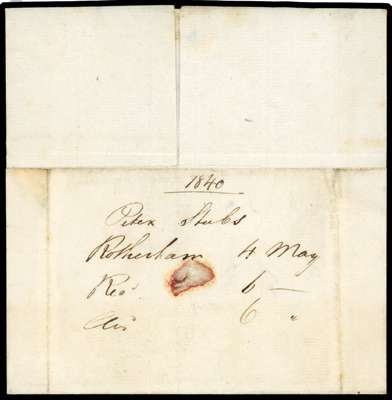 1840
Peter Stubs
Rotherham 4 May
Rec.d 6 —
Ans 6 "